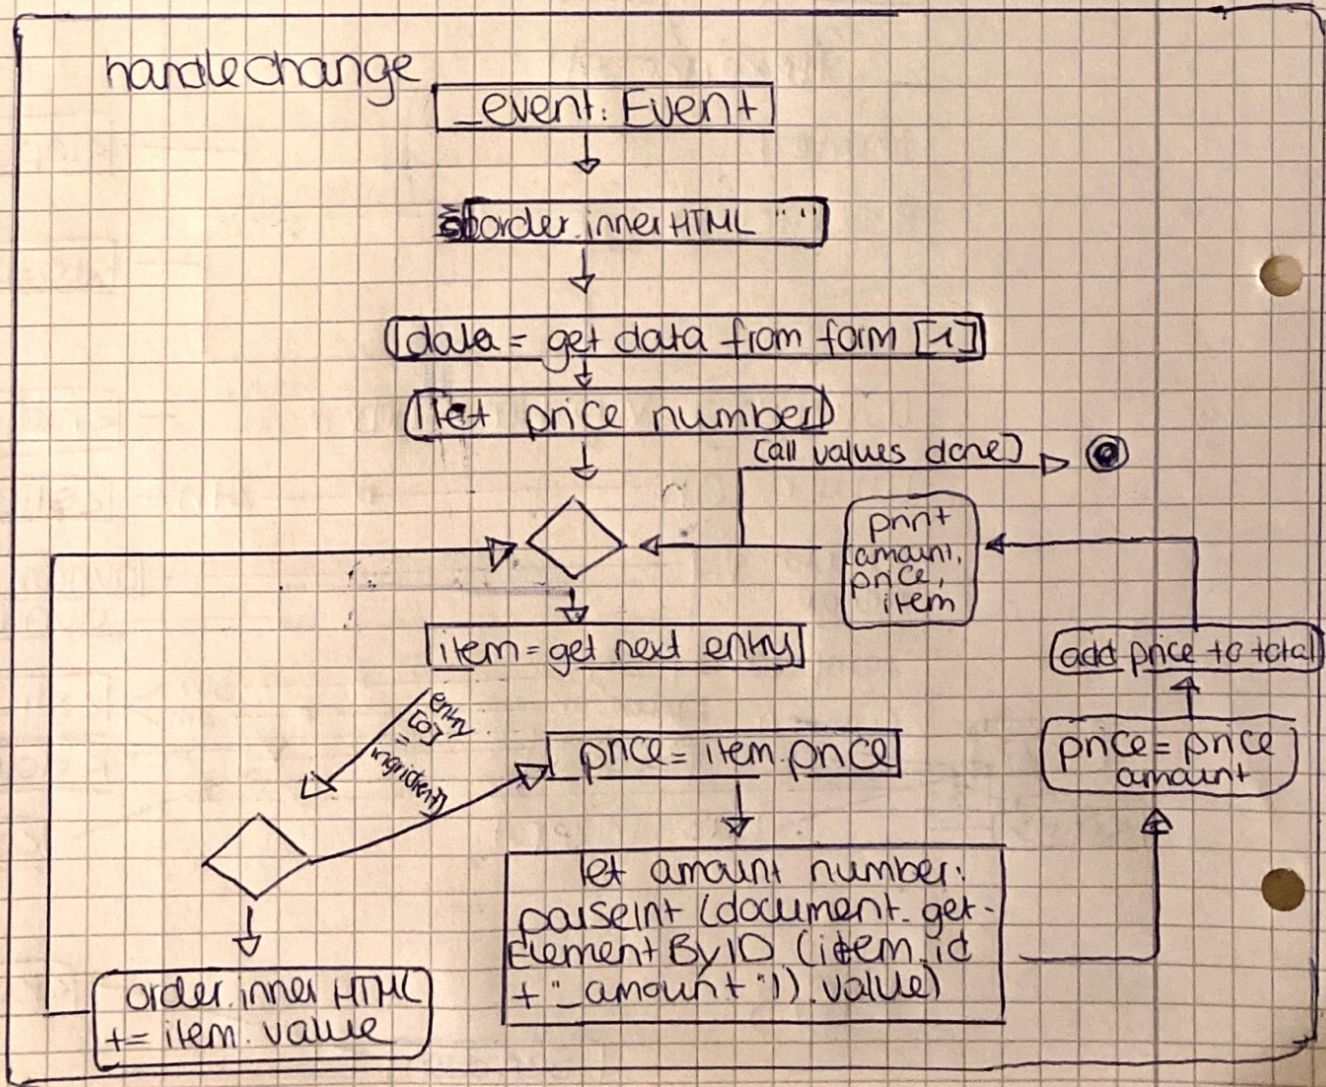 handlechange
_event: Event
order.innerHTML ""
data = get data from form [1]
let price number
[all values done]
print
amount,
price,
item
item = get next entry
add price to total
entry
[0]
=
ingrident]
price = item.price
price = price
amount
let amount number:
parseint (document.get-
ElementByID (item.id
+ "_amount")).value)
order.inner HTML
+= item.value